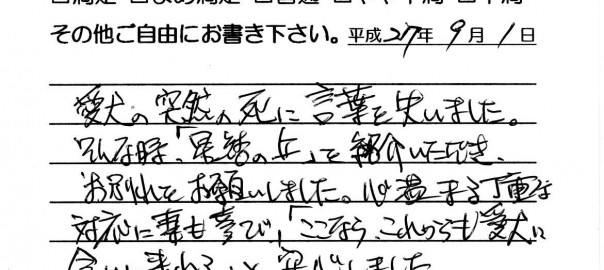 その他ご自由にお書き下さい。平成27年9月1日
愛犬の突然の死に言葉を失いました。
そんな時、「星詩の丘」を紹介いただき、
お別れをお願いしました。心温まる丁重な
対応に妻も喜び、「ここなら、これからも愛犬に
会いに来れる」と安心しました